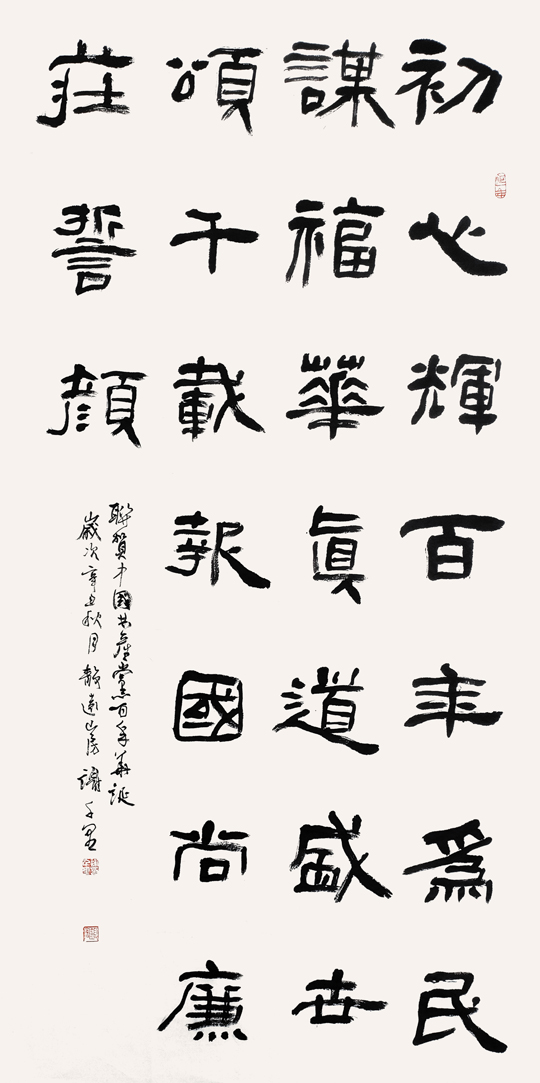 初心輝百年為民
謀福華真道盛世
頌千載報國尚廉
莊誓顏
聯賀中國共產黨百年華誕
歲次辛丑秋月静遠山房